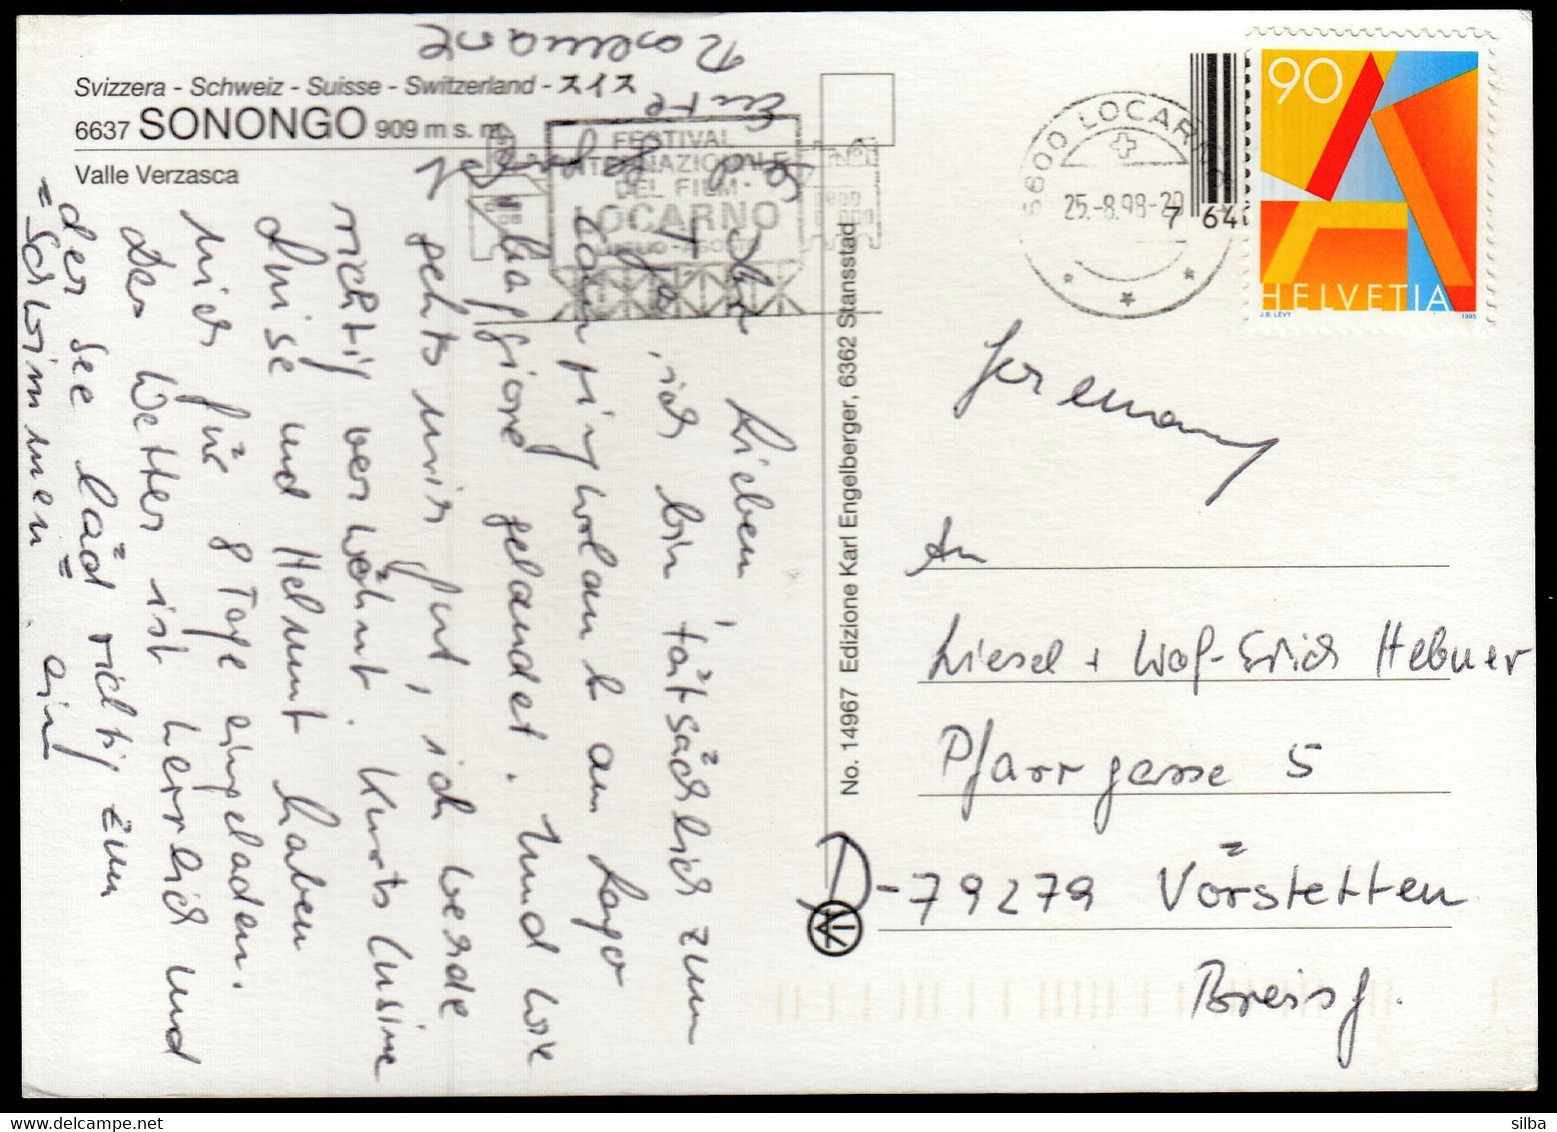 Svizzera - Schweiz - Suisse - Switzerland - スイス
6637 SONONGO 909 m s. m.
Valle Verzasca
FESTIVAL
INTERNAZIONALE
DEL FILM
LOCARNO
LUGLIO - AGOSTO
6600 LOCARNO
25.-8.98-20
7 64
90
HELVETIA
J.B. LÉVY 1995
Ihr Lieben,
ja, ich bin tatsächlich zum
am Lago
Maggiore gelandet. Und wie
gehts mir gut, ich werde
richtig verwöhnt. Kurts Cusine
Luise und Helmut haben
mich für 8 Tage eingeladen.
Das Wetter ist herrlich und
der See läd richtig zum
"Schwimmen" ein
Eure
Rosemarie
No. 14967 Edizione Karl Engelberger, 6362 Stansstad
Germany
An
Liesel + Wolf-Erich Hebner
Pfarrgasse 5
D-79279 Vörstetten
Breisg.
silba